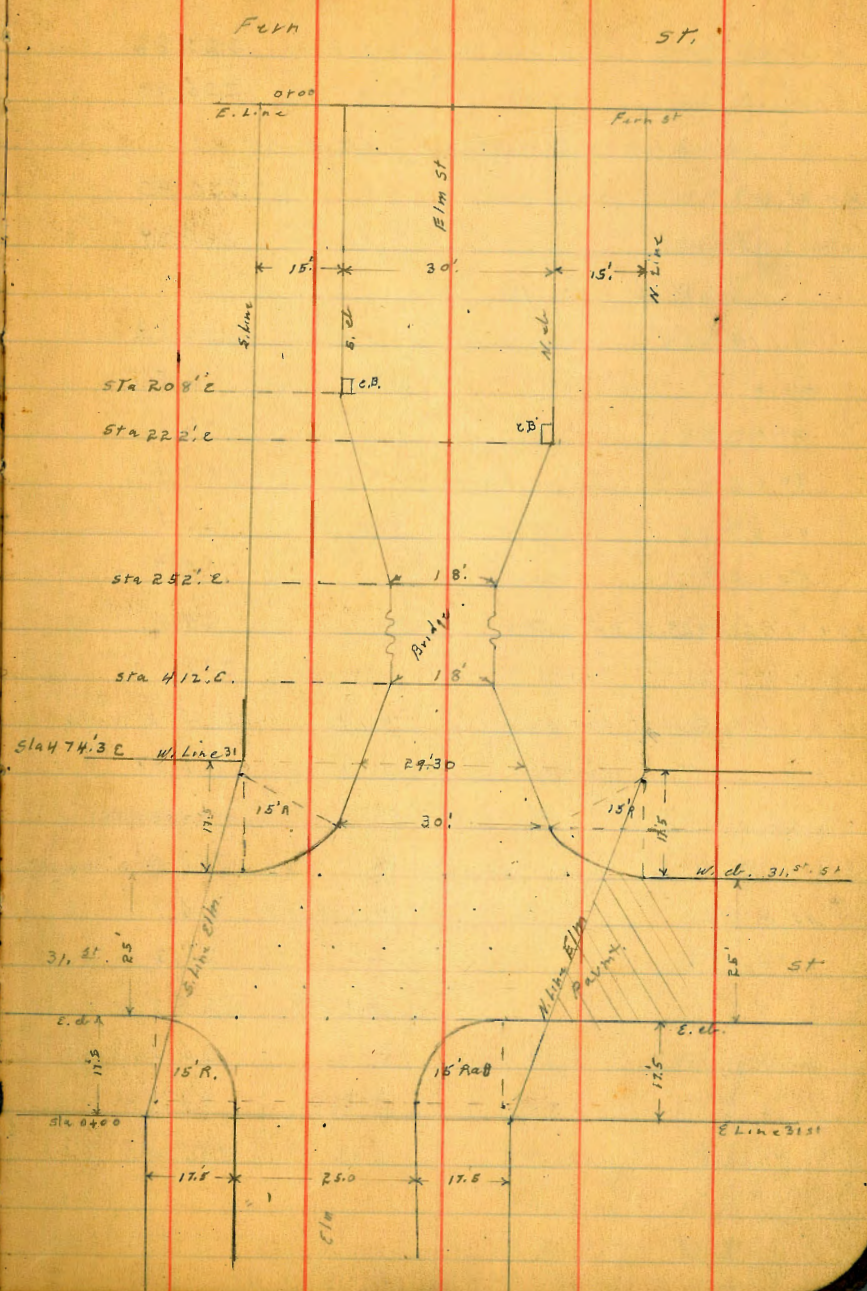 Fern St.
0+00
E. Line Fern St
Elm St
15' 30' 15'
S. Line
S. cb
N. cb
N. Line
Sta 208' E
C.B.
Sta 222' E
C.B.
Sta 252' E. 18'
Bridge
Sta 412' E. 18'
Sta 474.3 E W. Line 31
29.30
17.5 15'R 30' 15'R 17.5
W. cb. 31, st. St
31, St. 25' S. Line Elm N. Line Elm 25' St
Pavmt.
E. cb E. cb.
17.5 15'R. 15' Rad 17.5
Sta 0+00 E Line 31st
17.5 25.0 17.5
Elm